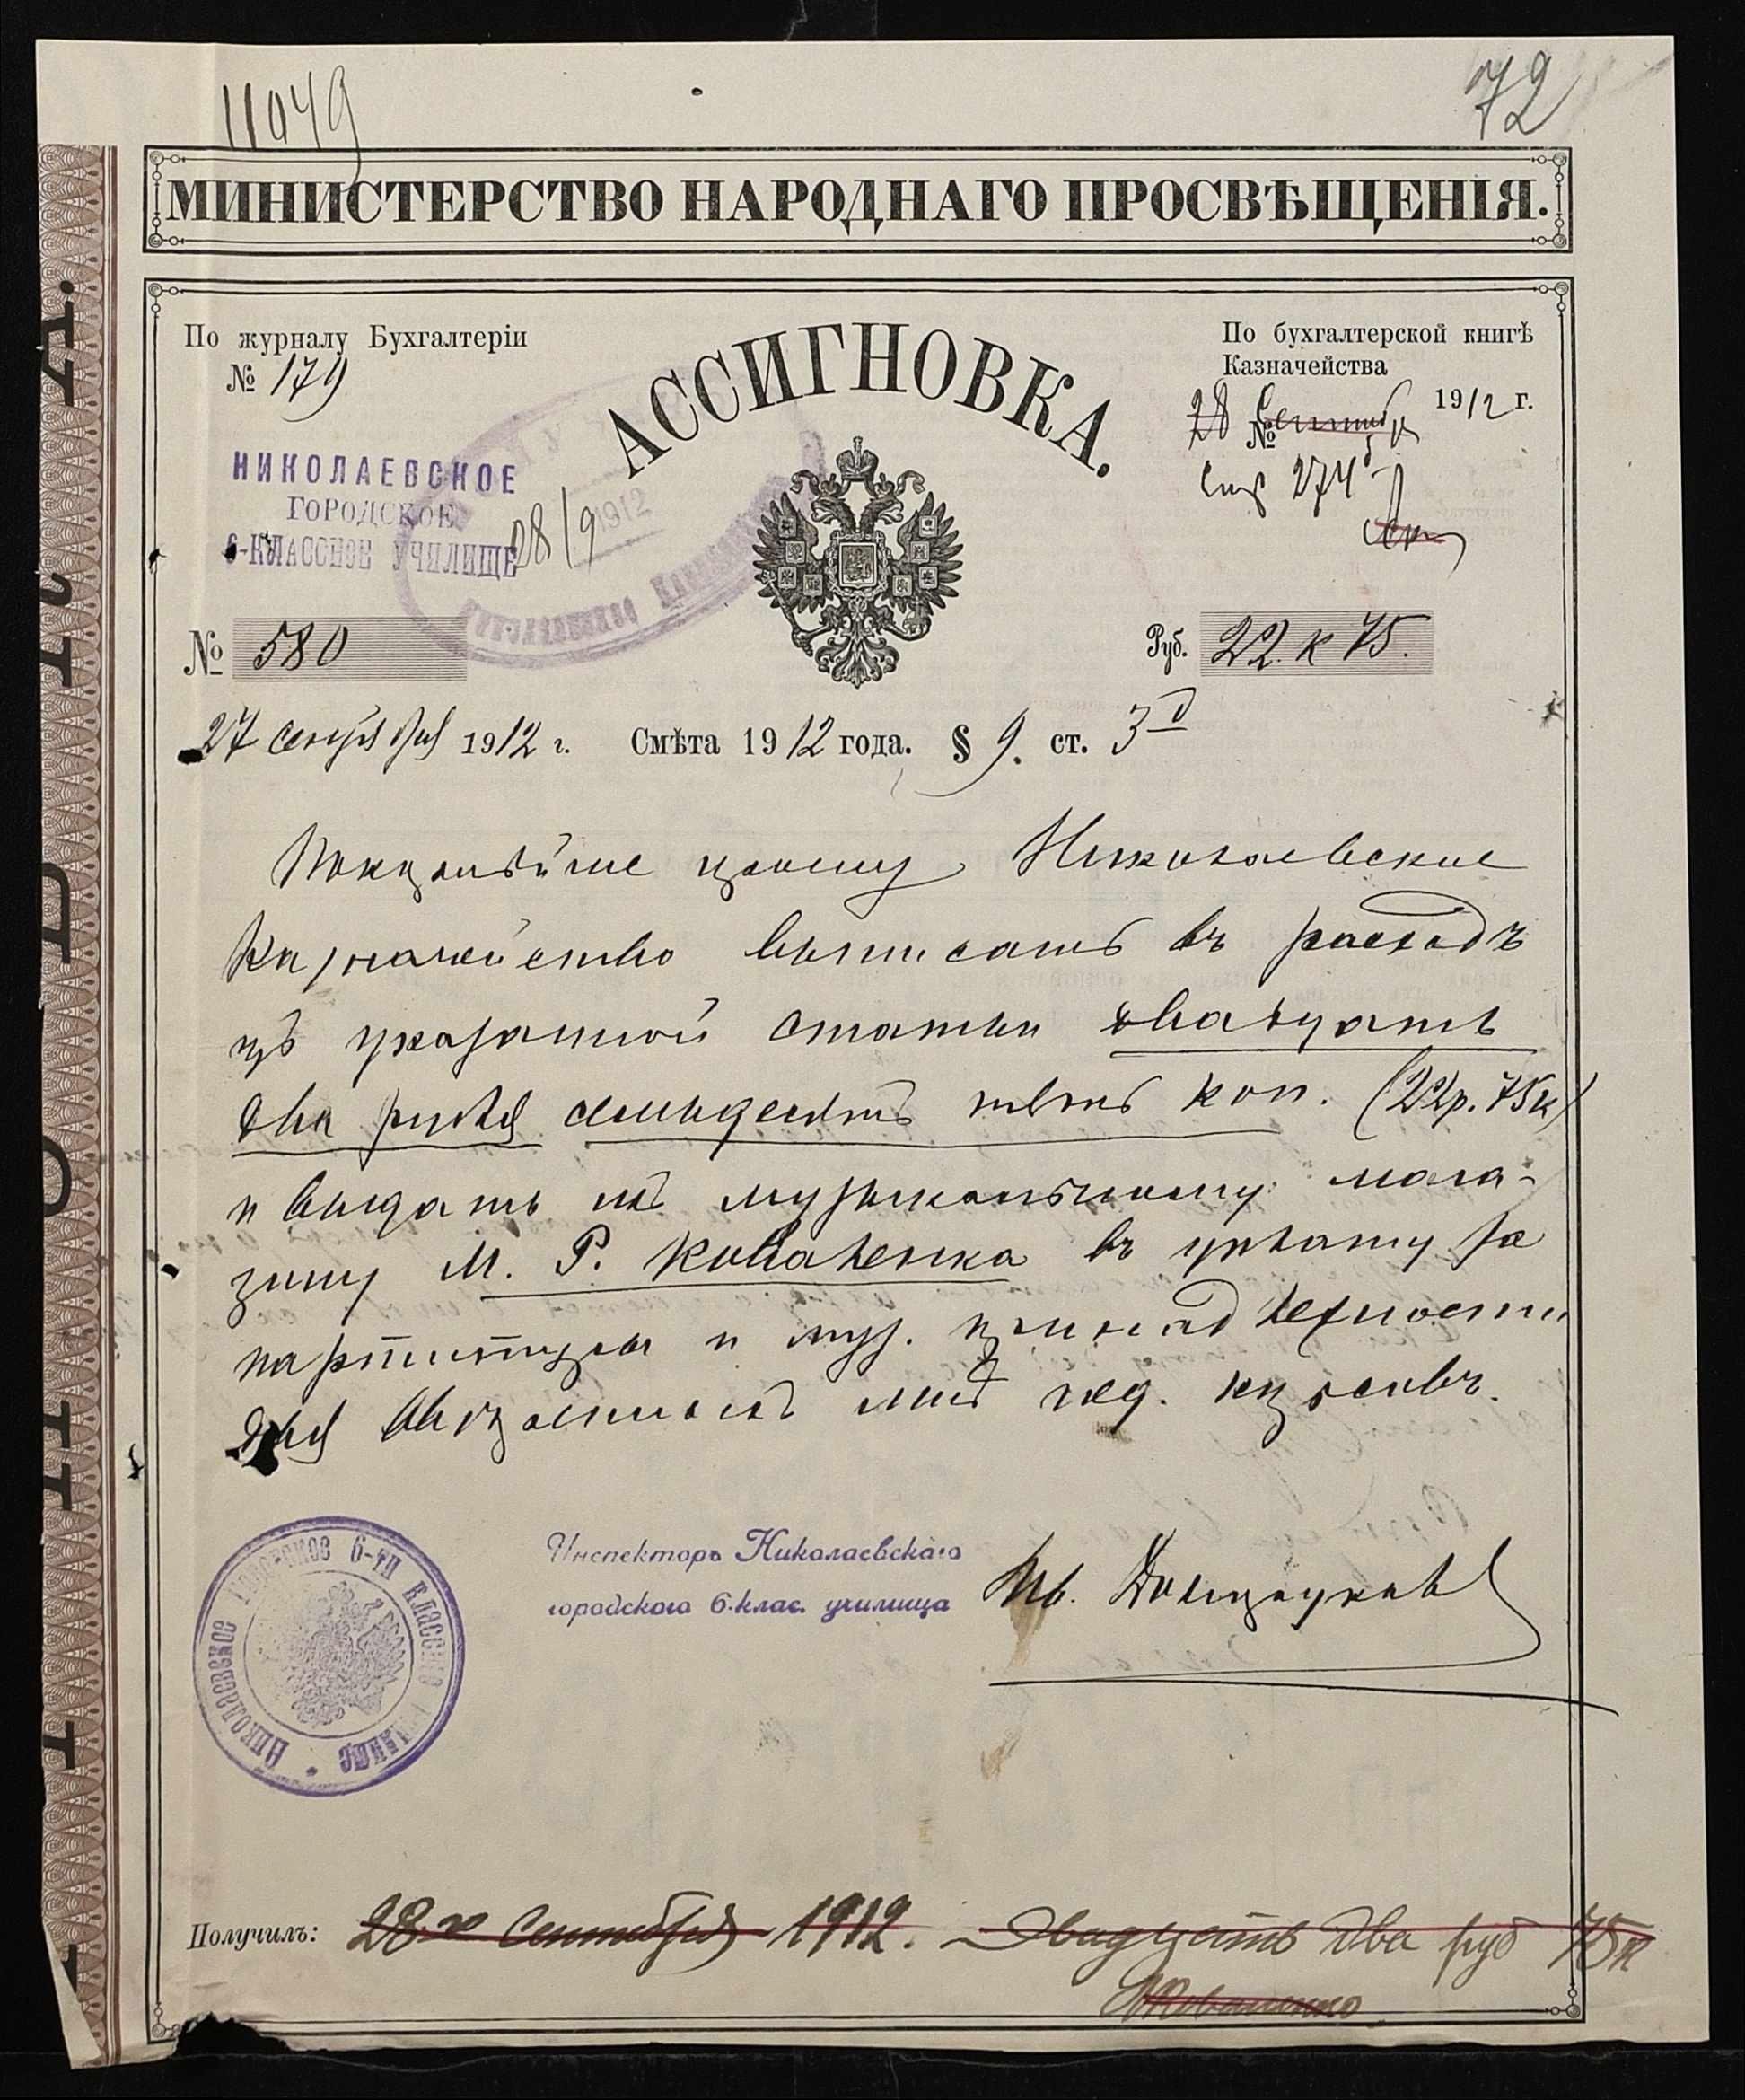 11049
72
МИНИСТЕРСТВО НАРОДНАГО ПРОСВѢЩЕНІЯ.
По журналу Бухгалтеріи
№ 179
АССИГНОВКА.
По бухгалтерской книгѣ
Казначейства
28 Сентября 1912 г.
№
стр 274
НИКОЛАЕВСКОЕ
ГОРОДСКОЕ
6-КЛАССНОЕ УЧИЛИЩЕ
28/9
1912
№ 580
Руб. 22. к 75.
27 сентября 1912 г. Смѣта 1912 года. § 9. ст. 3
Покорнѣйше прошу Николаевское
Казначейство выписать въ расходъ
изъ указанной статьи двадцать
два рубля семьдесятъ пять коп. (22р. 75к)
и выдать музыкальному мага-
зину М. Р. Коваленка въ уплату за
партитуры и муз. принадлежности
для пед. курсовъ.
НИКОЛАЕВСКОЕ ГОРОДСКОЕ 6-ТИ КЛАССНОЕ УЧИЛИЩЕ
Инспекторъ Николаевскаго
городского 6.клас. училища
Получилъ: 28го Сентября 1912. Двадцать два руб 75к
Коваленко